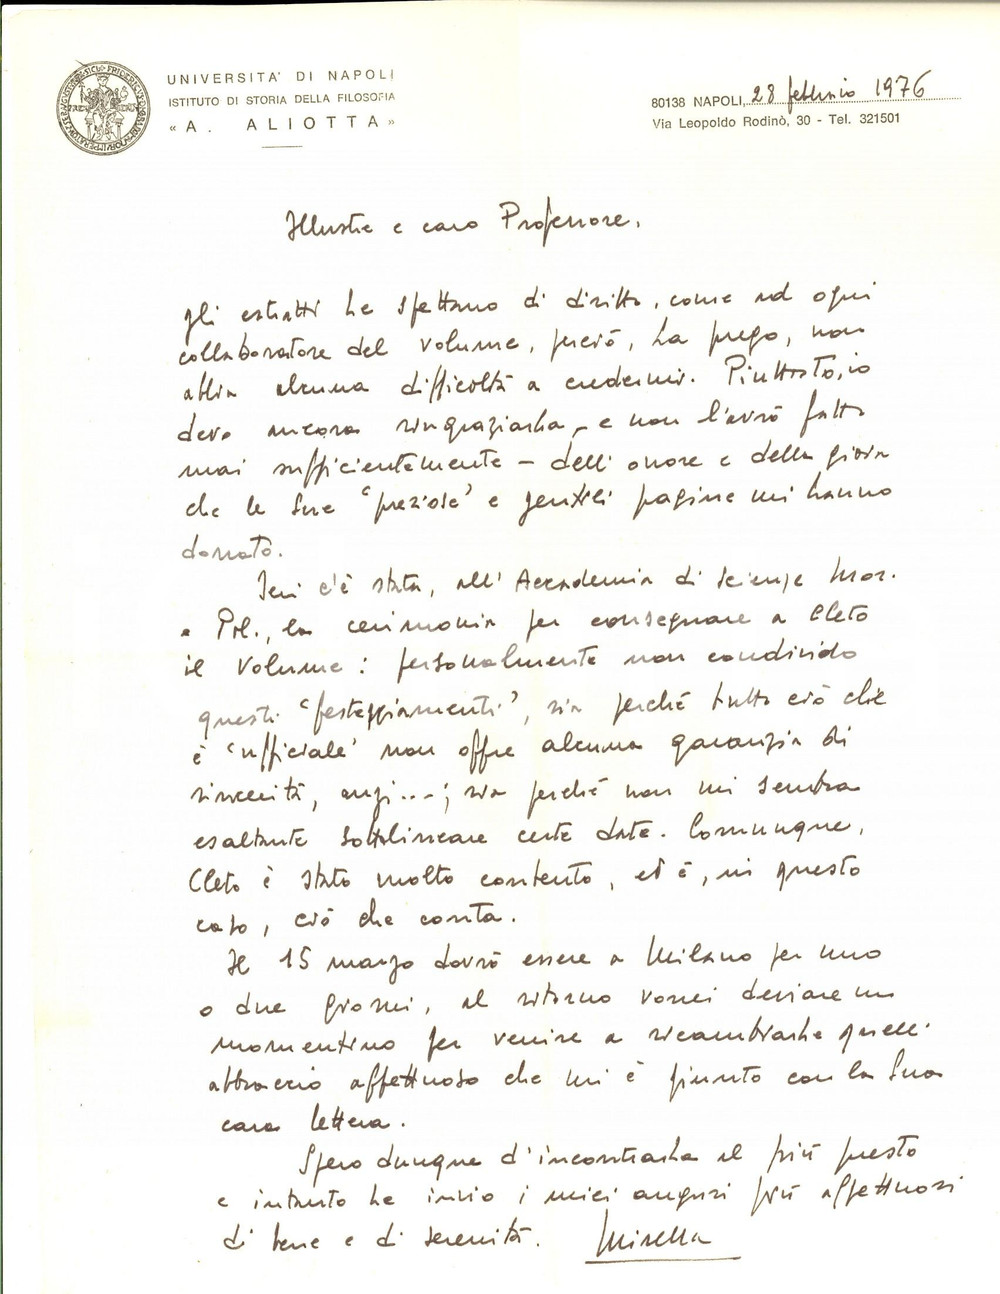 UNIVERSITA' DI NAPOLI
ISTITUTO DI STORIA DELLA FILOSOFIA
« A. ALIOTTA »
80138 NAPOLI, 28 febbraio 1976
Via Leopoldo Rodinò, 30 - Tel. 321501
Illustre e caro Professore,
gli estratti Le spettano di diritto, come ad ogni
collaboratore del volume, perciò, La prego, non
abbia alcuna difficoltà a credermi. Piuttosto, io
devo ancora ringraziarLa – e non l'avrò fatto
mai sufficientemente – dell'onore e della gioia
che le Sue 'preziose' e gentili pagine mi hanno
donato.
Ieri c'è stata, all'Accademia di Scienze Mor.
e Pol., la cerimonia per consegnare a Cleto
il volume: personalmente non condivido
questi 'festeggiamenti', sia perché tutto ciò che
è 'ufficiale' non offre alcuna garanzia di
sincerità, anzi...; sia perché non mi sembra
esaltante sottolineare certe date. Comunque,
Cleto è stato molto contento, ed è, in questo
caso, ciò che conta.
Il 15 marzo dovrò essere a Milano per uno
o due giorni, al ritorno vorrei deviare un
momentino per venire a ricambiarLe quell'
abbraccio affettuoso che mi è giunto con la Sua
cara lettera.
Spero dunque d'incontrarLa al più presto
e intanto Le invio i miei auguri più affettuosi
di bene e di serenità. Mirella